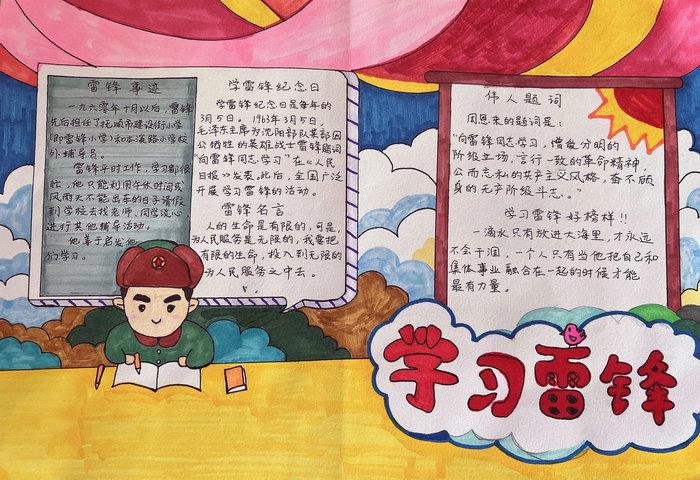 雷锋事迹
一九六零年十月以后，雷锋
先后担任了抚顺市建设街小学
(即雷锋小学)和本溪路小学校
外辅导员。
雷锋平时工作，学习都很
忙，他只能利用午休时间或
风雨天不能出车的日子请假
到学校去找老师，同学谈心，
进行其他辅导活动。
他善于启发他
们学习。
学雷锋纪念日
学雷锋纪念日是每年的
3月5日。1963年3月5日，
毛泽东主席为沈阳部队某部因
公牺牲的英雄战士雷锋题词
"向雷锋同志学习"在《人民
日报》发表。此后，全国广泛
开展学习雷锋的活动。
雷锋名言
人的生命是有限的，可是，
为人民服务是无限的，我要把
有限的生命，投入到无限的
为人民服务之中去。
伟人题词
周恩来的题词是：
"向雷锋同志学习，憎爱分明的
阶级立场，言行一致的革命精神，
公而忘私的共产主义风格，奋不顾
身的无产阶级斗志。"
学习雷锋好榜样!!
一滴水只有放进大海里，才永远
不会干涸，一个人只有当他把自己和
集体事业融合在一起的时候才能
最有力量。
学习雷锋